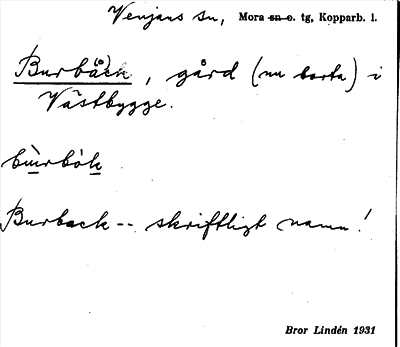 Venjans sn, Mora sn o. tg, Kopparb. l.
Burbäck, gård (nu borta) i
Västbygge.
bùrbòk
Burback -- skriftligt namn!
Bror Lindén 1931